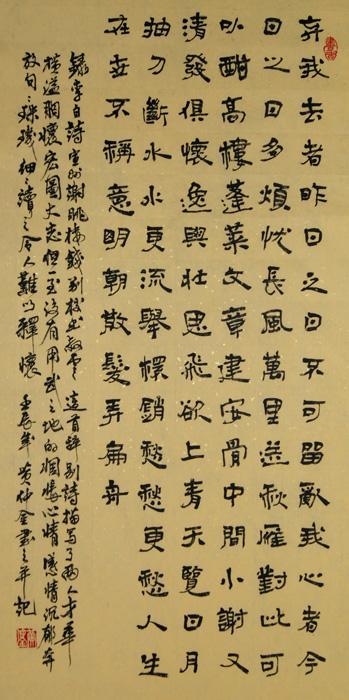 弃我去者昨日之日不可留亂我心者今
日之日多煩忧長風萬里送秋雁對此可
以酣高樓蓬萊文章建安骨中間小謝又
清發俱懷逸興壯思飛欲上青天覽日月
抽刀斷水水更流舉杯銷愁愁更愁人生
在世不稱意明朝散髮弄扁舟
録李白詩宣州謝朓樓餞别校書叔雲這首餞别詩描写了兩人才華
横溢胸懷宏圖大志但一直没有用武之地的惆悵心情感情沉郁奔
放句々珠璣細々讀之令人難以釋懷壬辰年黄仲金書之并記